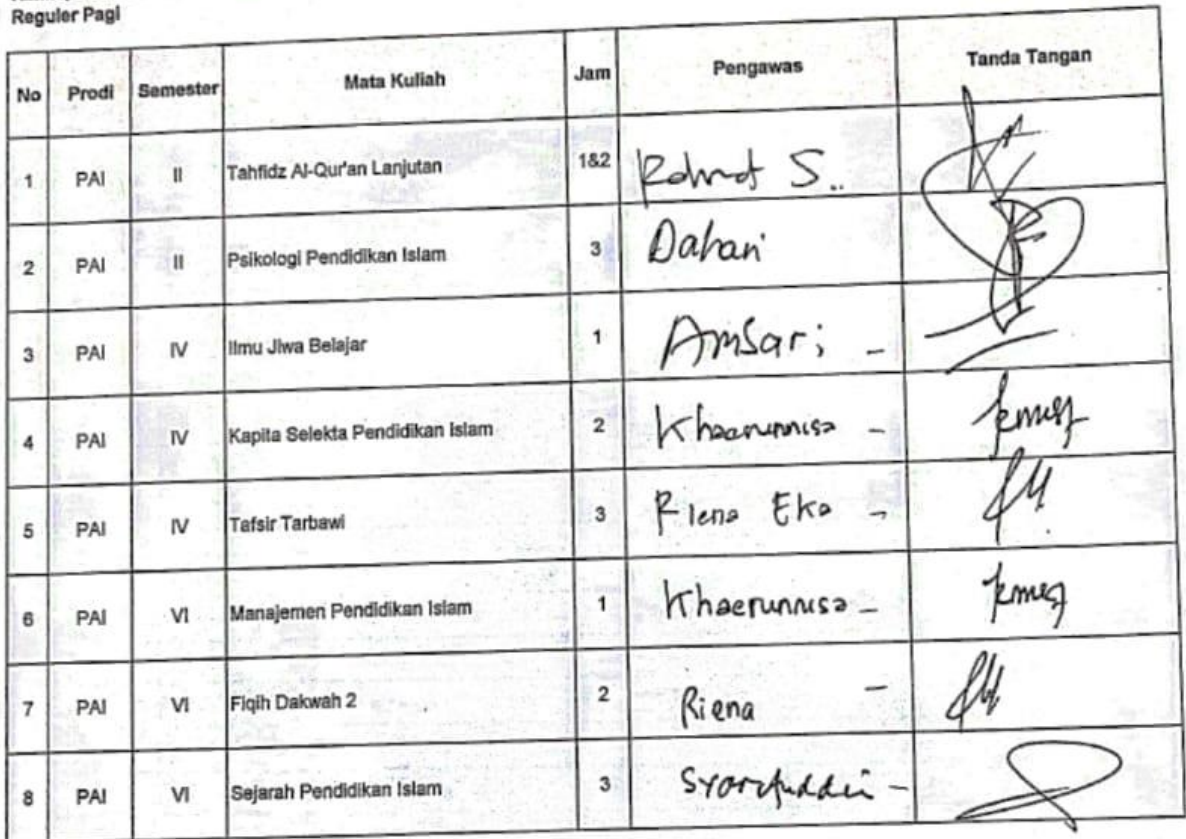 Reguler Pagi
No Prodi Semester Mata Kuliah Jam Pengawas Tanda Tangan
1 PAI II Tahfidz Al-Qur'an Lanjutan 1&2 Rahmat S..
2 PAI II Psikologi Pendidikan Islam 3 Dahari
3 PAI IV Ilmu Jiwa Belajar 1 Amsari -
4 PAI IV Kapita Selekta Pendidikan Islam 2 Khaerunnisa -
5 PAI IV Tafsir Tarbawi 3 Riena Eka -
6 PAI VI Manajemen Pendidikan Islam 1 Khaerunnisa -
7 PAI VI Fiqih Dakwah 2 2 Riena -
8 PAI VI Sejarah Pendidikan Islam 3 Syarifuddin -